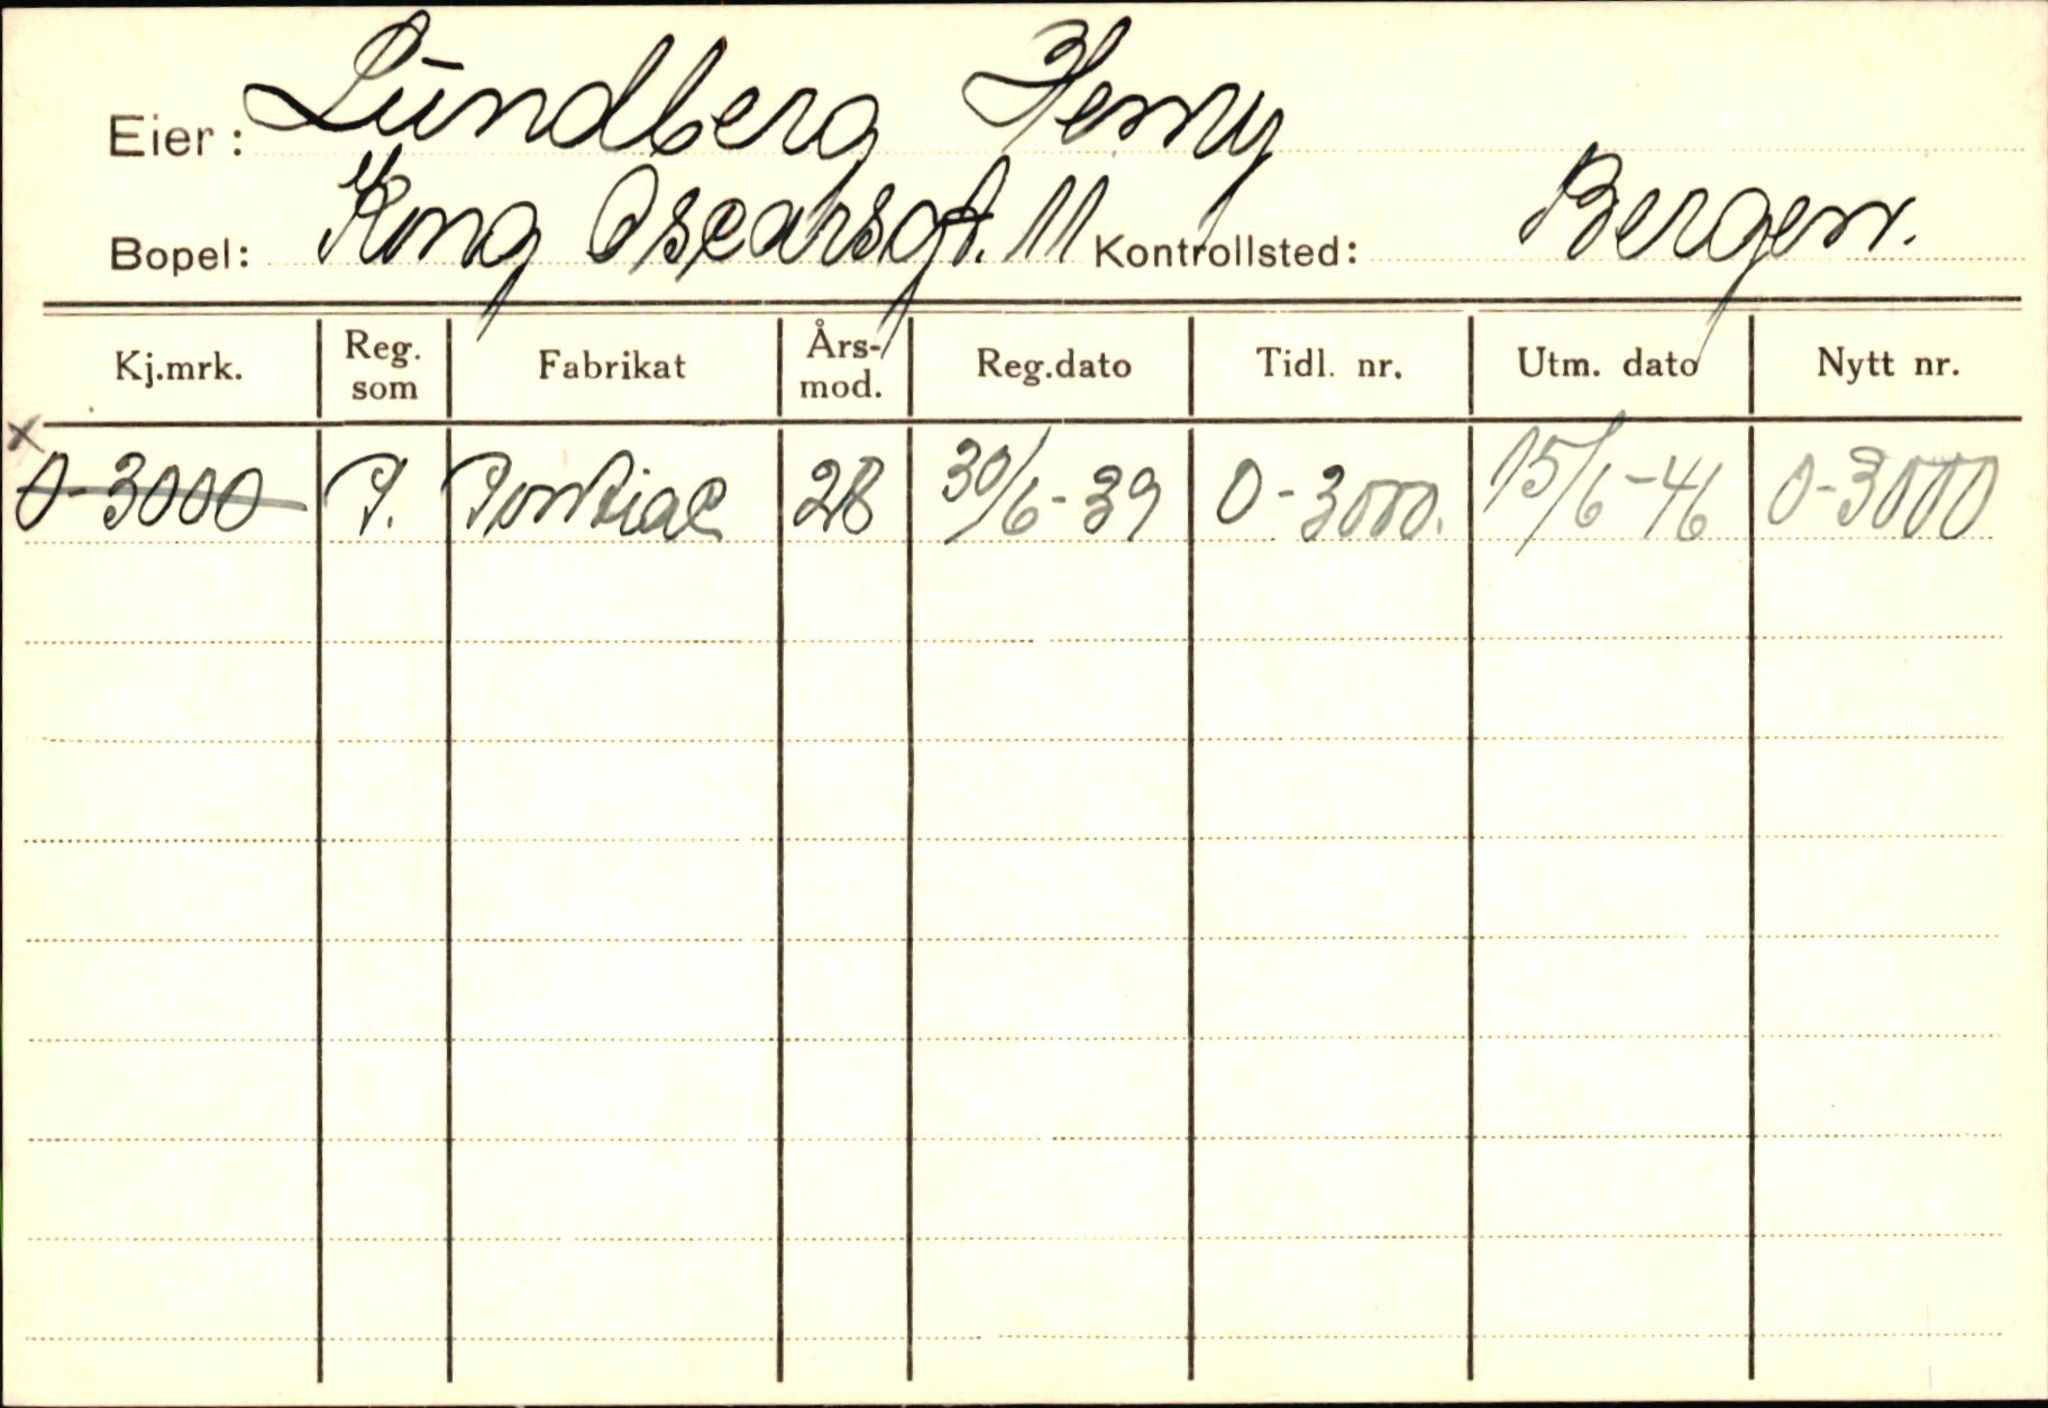 Eier: Lundberg Henry
Bopel: Kong Oscarsgt. 11 Kontrollsted: Bergen.
Kj.mrk. Reg. som Fabrikat Års-mod. Reg.dato Tidl. nr. Utm. dato Nytt nr.
x O-3000 P. Pontiac 28 30/6-39 O-3000. 15/6-46 O-3000